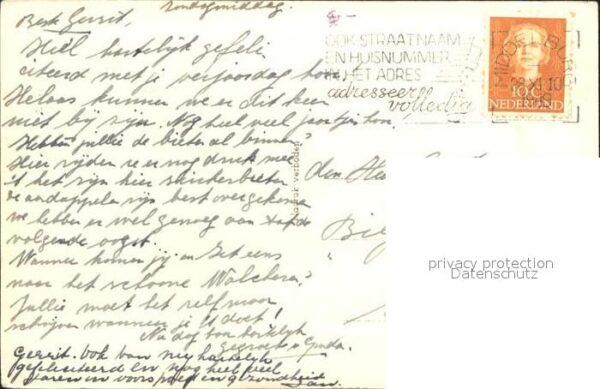 Zondagmiddag.
Beste Gerrit,
Heel hartelijk gefeli
citeerd met je verjaardag hoor.
Helaas kunnen we er dit keer
niet bij zijn. Nog heel veel jaartjes hoor.
Hebben jullie de bieten al binnen?
Hier rijden ze er nog druk mee
't het zijn hier suikerbieten
de aardappels zijn best overgekomen
we hebben er wel genoeg aan tot de
volgende oogst.
Wanneer komen jij en Zet eens
naar het schoone Walcheren?
Jullie moet het zelf maar
schrijven wanneer je 't doet!
Nu dag hoor hartelijk
gegroet
Gerrit. ook van mij hartelijk
gefeliciteerd en nog heel veel
jaren in voorspoed en gezondheid
Jan.
OOK STRAATNAAM
EN HUISNUMMER
IN HET ADRES
adresseer
volledig
MIDDELBURG
10 C
NEDERLAND
Nadruk verboden
den
privacy protection
Datenschutz